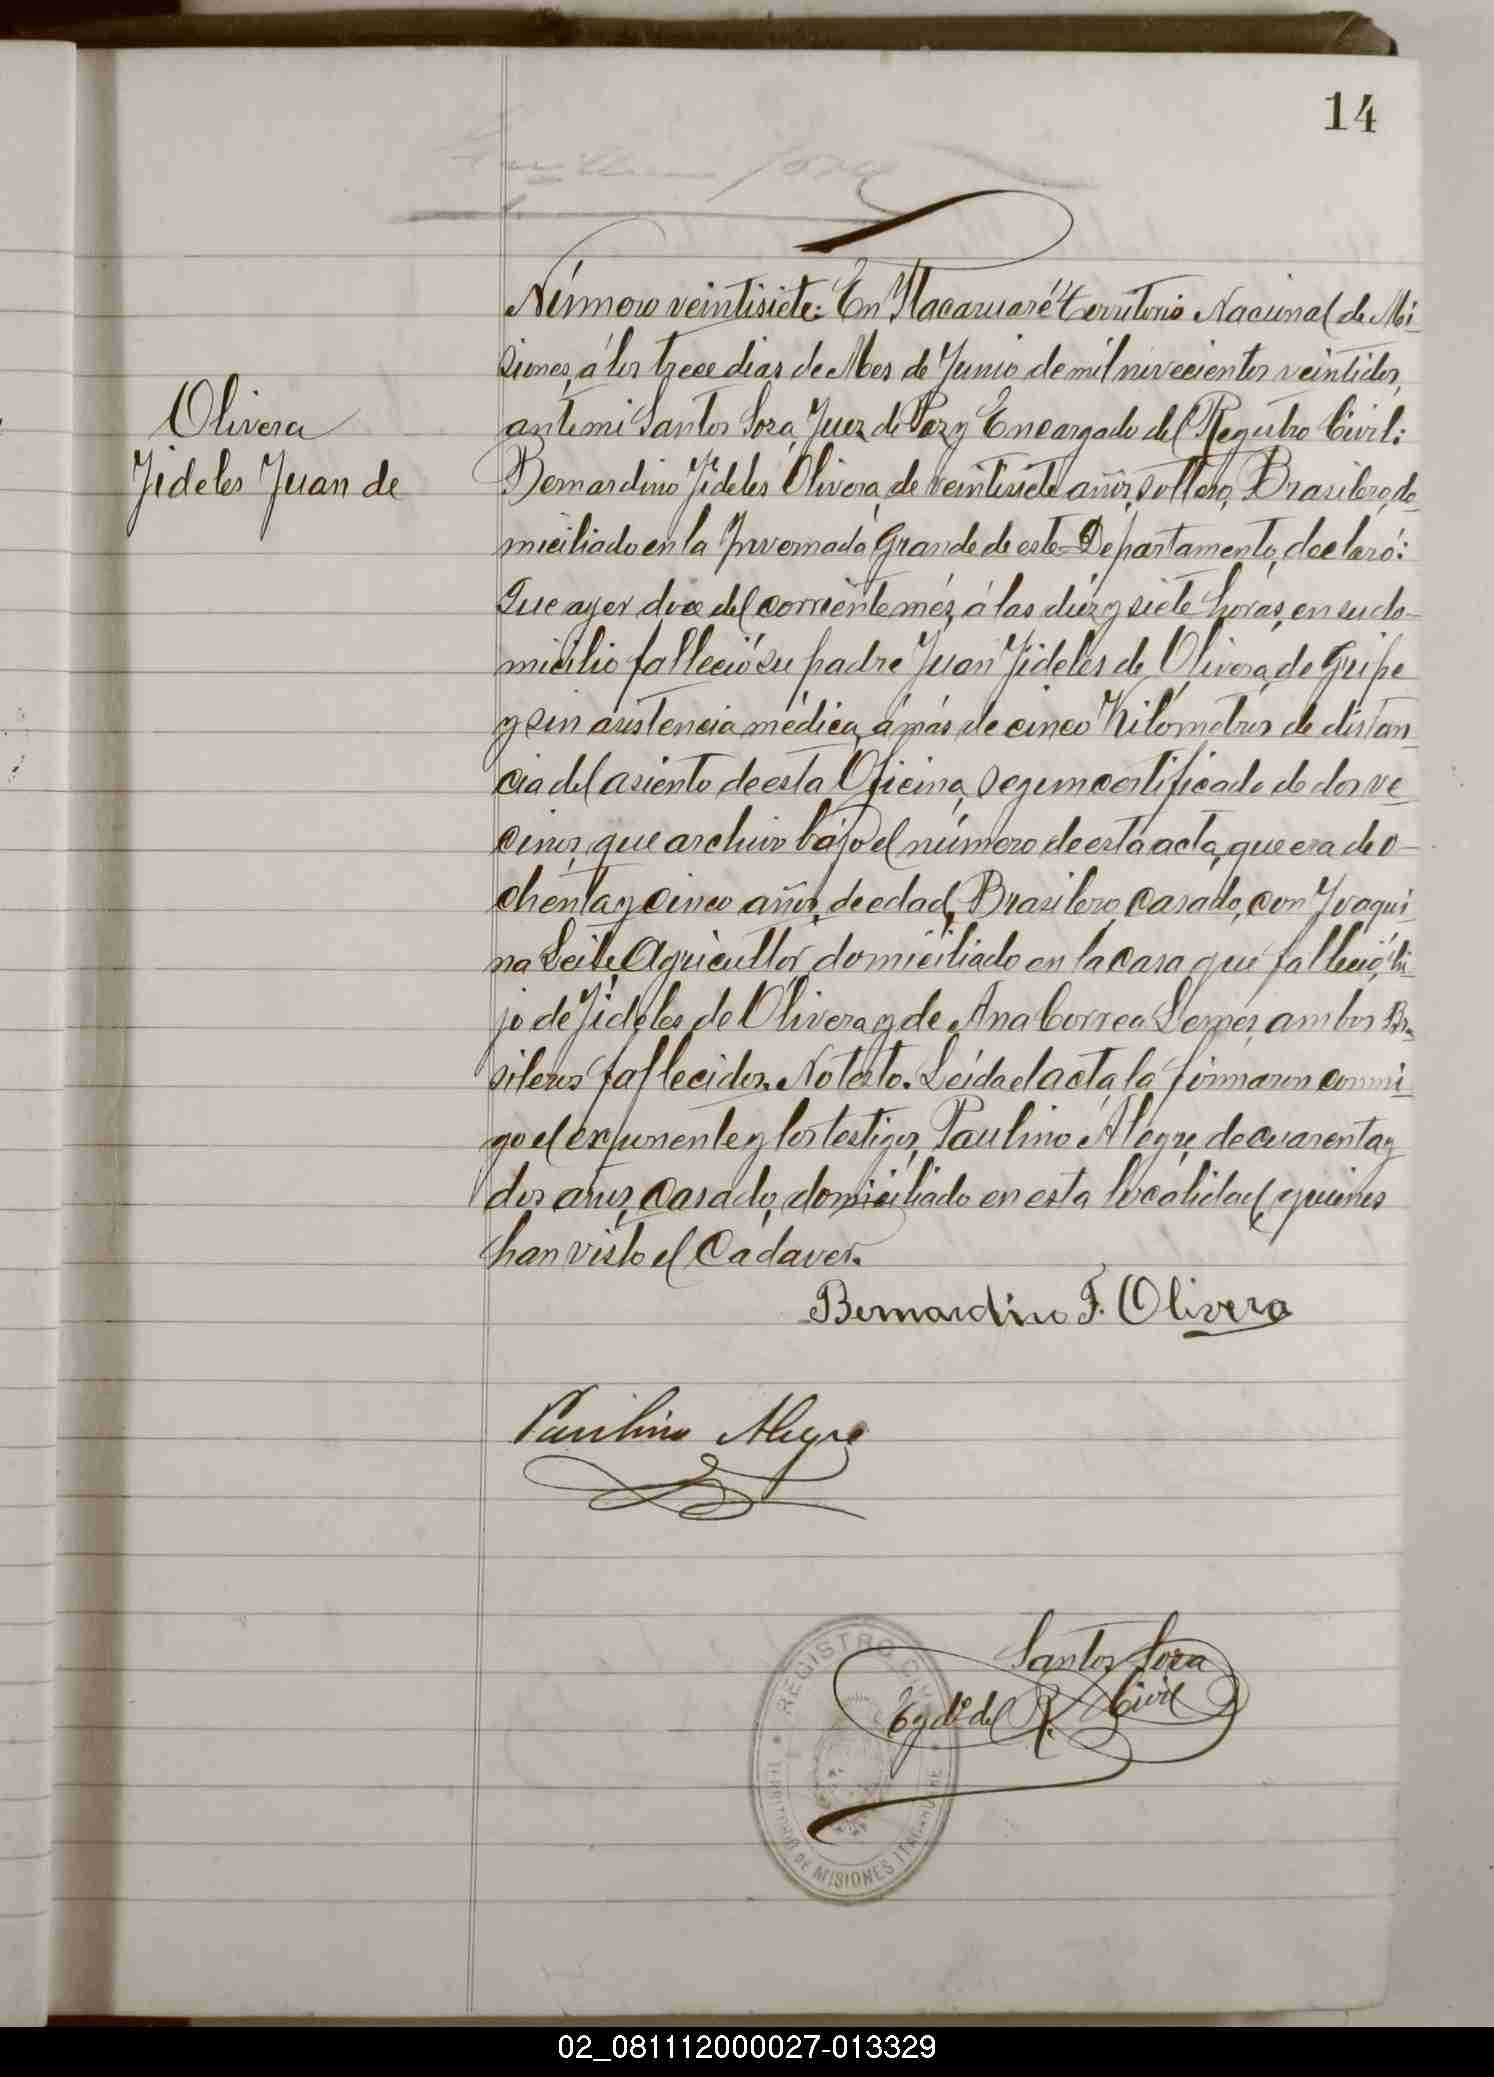 14
Número veintisiete: En Itacaruaré Territorio Nacional de Mi-
siones, á los trece dias de Mes de Junio de mil novecientos veintidos,
Olivera
ante mi Santos Soza, Juez de Paz y Encargado del Registro Civil:
Fideles Juan de
Bernardino Fideles Olivera, de veintisiete años, soltero, Brasilero, do-
miciliado en la Invernada Grande de este Departamento, declaró:
Que ayer doce del corriente més, á las diéz y siete horas, en su do-
micilio falleció su padre Juan Fideles de Olivera, de Gripe
y sin asistencia médica, á más de cinco Kilómetros de distan-
cia del asiento de esta Oficina, segun certificado de dos ve-
cinos, que archivo bajo el número de esta acta, que era de o-
chenta y cinco años, de edad, Brasilero, Casado, con Joaqui-
na Leite, Agricultor, domiciliado en la casa que falleció, hi-
jo de Fideles de Olivera y de Ana Correa Lemes, ambos Bra-
sileros fallecidos. No testo. Leída el acta, la firmaron conmi-
go el exponente y los testigos, Paulino Alegre, de cuarenta y
dos años, Casado, domiciliado en esta localidad, quienes
han visto el Cadaver.
Bernardino F. Olivera
Paulino Alegre
Santos Soza
Egdo. del R. Civil
REGISTRO CIVIL
TERRITORIO DE MISIONES ITACARUARE
02_081112000027-013329